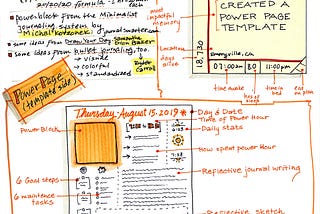 20/20/20 formula
• power block from the Minimalist
journaling system by
Michal Korzonek
• some ideas from Draw Your Day
Samantha Dion Baker
• some ideas from bullet journaling, too.
Ryder Carroll
→ visual
→ colorful
→ standardized
most
impactful
memory
CREATED A
POWER PAGE
TEMPLATE
Location
days alive
18,730
Emeryville, CA
07:00am
11:00pm
time awake
hrs of sleep
time in bed
eat on plan
Power Page
(template side)
Thursday-August 15.2019
Day & Date
Time of Power Hour
Daily stats
Power Block
How spent power hour
Reflective journal writing
6 Goal steps
6 maintence
tasks
Reflective sketch